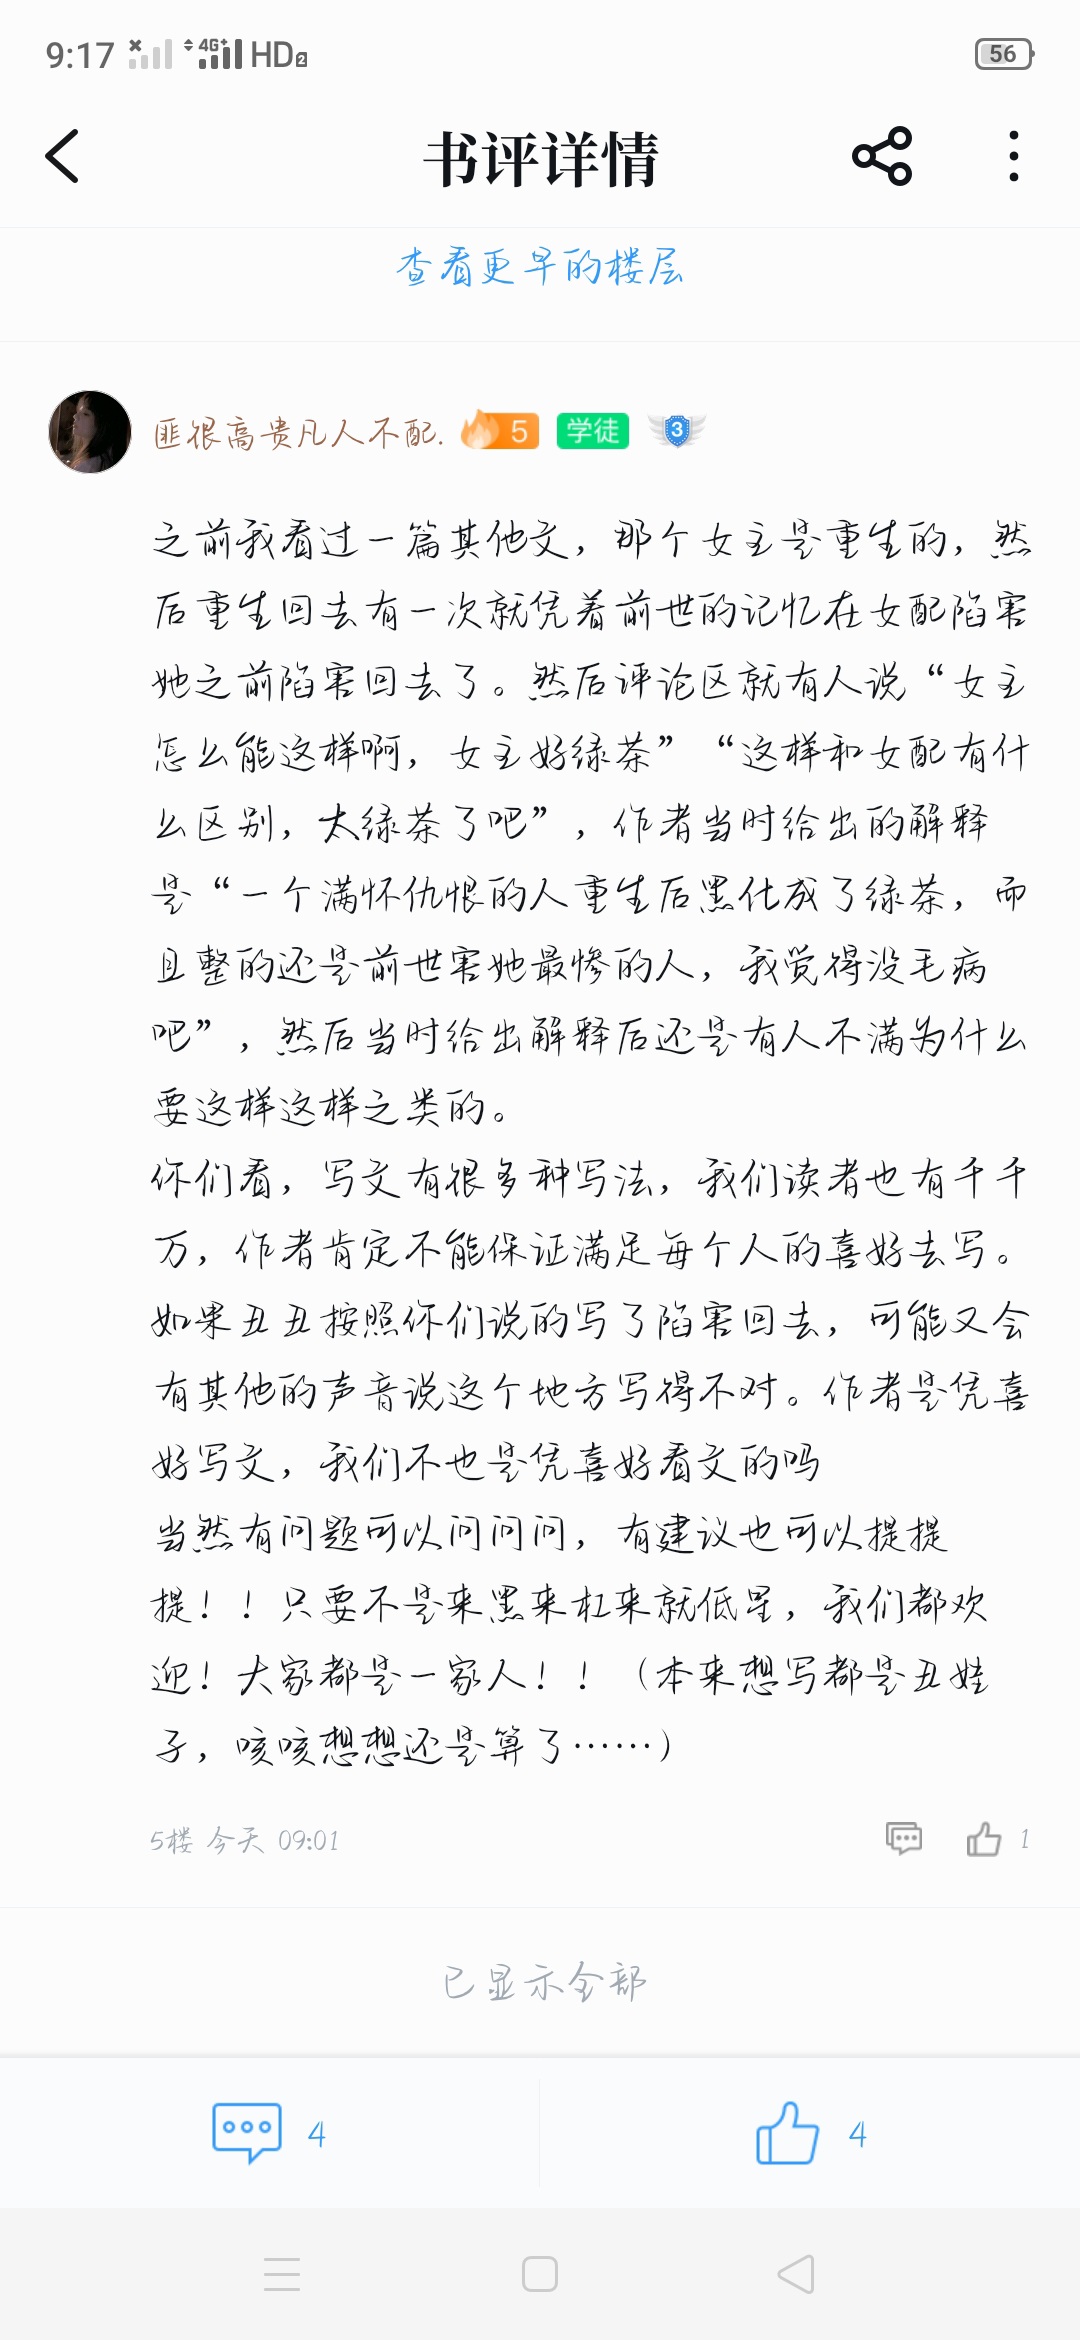 9:17 4G+ HD2 56
书评详情
查看更早的楼层
匪很高贵凡人不配. 5 学徒 3
之前我看过一篇其他文，那个女主是重生的，然
后重生回去有一次就凭着前世的记忆在女配陷害
她之前陷害回去了。然后评论区就有人说“女主
怎么能这样啊，女主好绿茶”“这样和女配有什
么区别，太绿茶了吧”，作者当时给出的解释
是“一个满怀仇恨的人重生后黑化成了绿茶，而
且整的还是前世害她最惨的人，我觉得没毛病
吧”，然后当时给出解释后还是有人不满为什么
要这样这样之类的。
你们看，写文有很多种写法，我们读者也有千千
万，作者肯定不能保证满足每个人的喜好去写。
如果丑丑按照你们说的写了陷害回去，可能又会
有其他的声音说这个地方写得不对。作者是凭喜
好写文，我们不也是凭喜好看文的吗
当然有问题可以问问问，有建议也可以提提
提！！只要不是来黑来杠来就低星，我们都欢
迎！大家都是一家人！！（本来想写都是丑娃
子，咳咳想想还是算了……）
5楼 今天 09:01 1
已显示全部
4 4